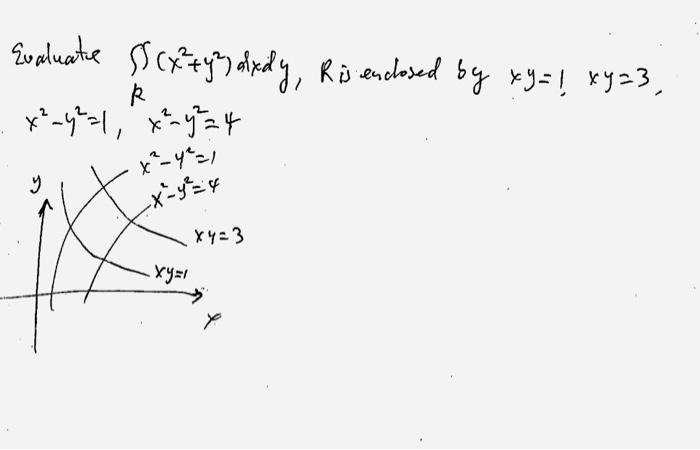 Evaluate ∬(x²+y²) dxdy, R is enclosed by xy=1, xy=3,
R
x²-y²=1, x²-y²=4
x²-y²=1
y
x²-y²=4
xy=3
xy=1
x